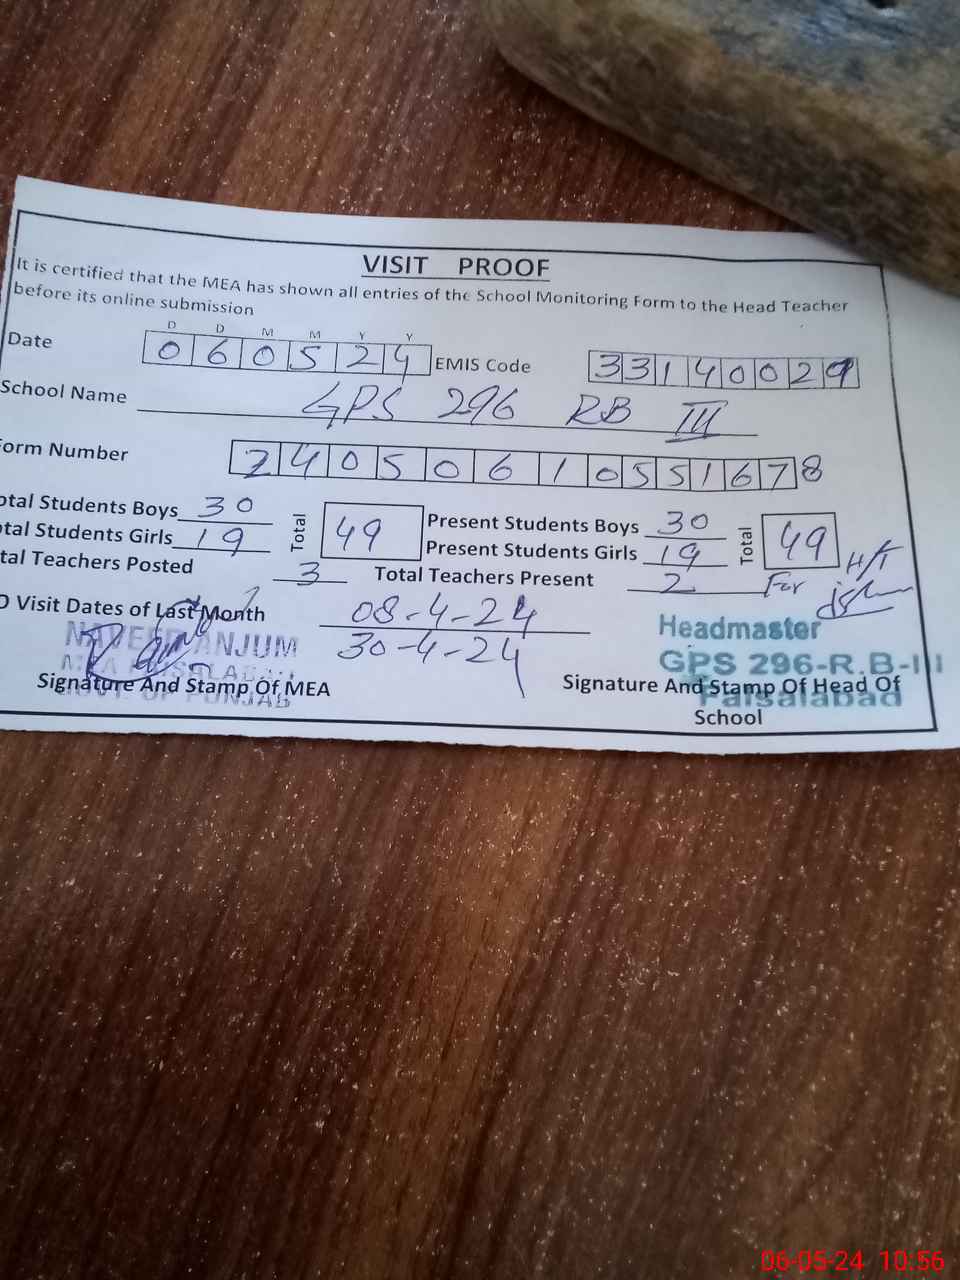 VISIT PROOF
It is certified that the MEA has shown all entries of the School Monitoring Form to the Head Teacher
before its online submission
D D M M Y Y
Date 060524 EMIS Code 33140029
School Name GPS 296 RB III
orm Number 24050610551678
otal Students Boys 30 Total 49 Present Students Boys 30 Total 49
tal Students Girls 19 Present Students Girls 19
tal Teachers Posted 3 Total Teachers Present 2 For H/T
O Visit Dates of Last Month 08-4-24
30-4-24
NAVEED ANJUM
MEA FAISALABAD
GOVT. OF PUNJAB
Signature And Stamp Of MEA
Headmaster
GPS 296-R.B-III
Faisalabad
Signature And Stamp Of Head Of
School
06-05-24 10:56